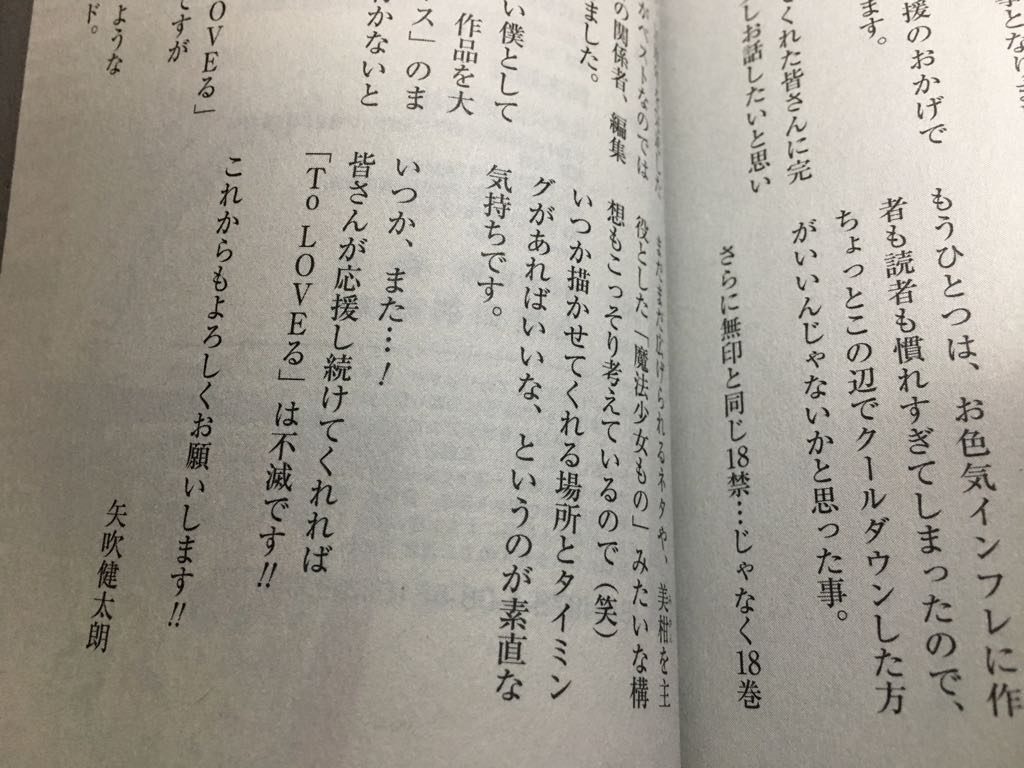 援のおかげで
ます。
てくれた皆さんに完
しお話したいと思い
もうひとつは、お色気インフレに作
者も読者も慣れすぎてしまったので、
ちょっとこの辺でクールダウンした方
がいいんじゃないかと思った事。
さらに無印と同じ18禁…じゃなく18巻
がベストなのでは
の関係者、編集
ました。
い僕として
作品を大
ス」のま
かないと
OVEる」
ですが
ような
ド。
まだまだ広げられるネタや、美柑を主
役とした「魔法少女もの」みたいな構
想もこっそり考えているので（笑）
いつか描かせてくれる場所とタイミン
グがあればいいな、というのが素直な
気持ちです。
いつか、また…！
皆さんが応援し続けてくれれば
「To LOVEる」は不滅です!!
これからもよろしくお願いします!!
矢吹健太朗